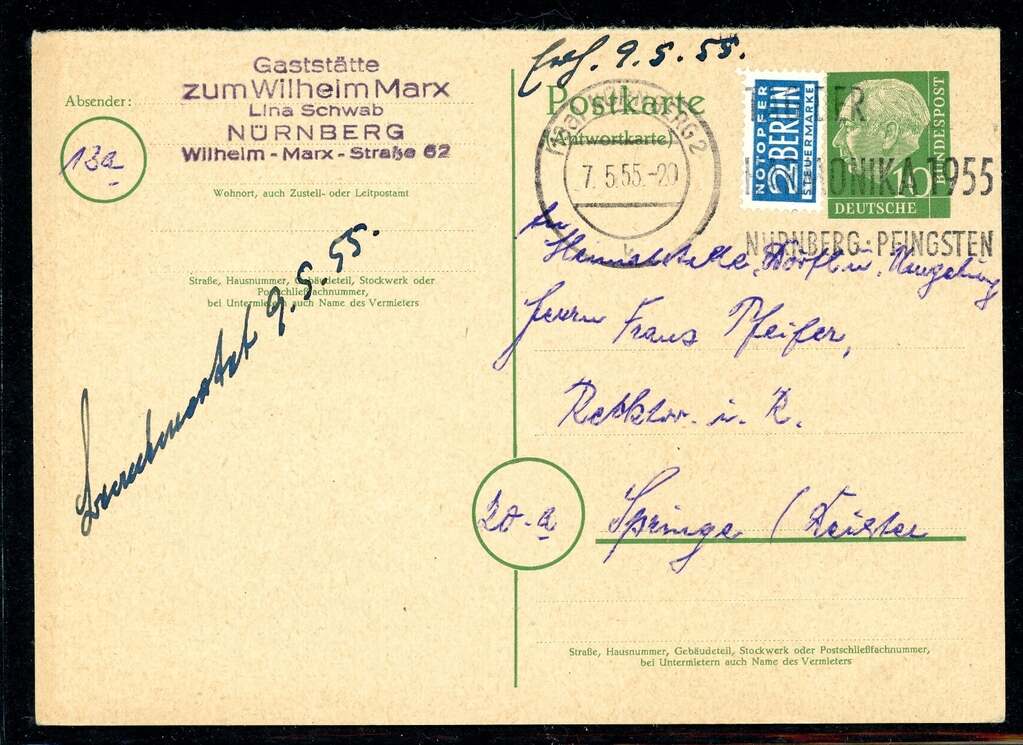 Absender:
Gaststätte
zum Wilhelm Marx
Lina Schwab
NÜRNBERG
Wilhelm - Marx - Straße 62
13a
Wohnort, auch Zustell- oder Leitpostamt
Straße, Hausnummer, Gebäudeteil, Stockwerk oder
Postschließfachnummer,
bei Untermietern auch Name des Vermieters
9.5.55.
9.5.55.
Postkarte
(Antwortkarte)
NÜRNBERG 2
7.5.55.-20
b
NOTOPFER
2 BERLIN
STEUERMARKE
10
DEUTSCHE
BUNDESPOST
1955
NÜRNBERG-PFINGSTEN
Herrn Franz Pfeifer,
Rektor i. R.
20-a
Springe / Deister
Straße, Hausnummer, Gebäudeteil, Stockwerk oder Postschließfachnummer,
bei Untermietern auch Name des Vermieters